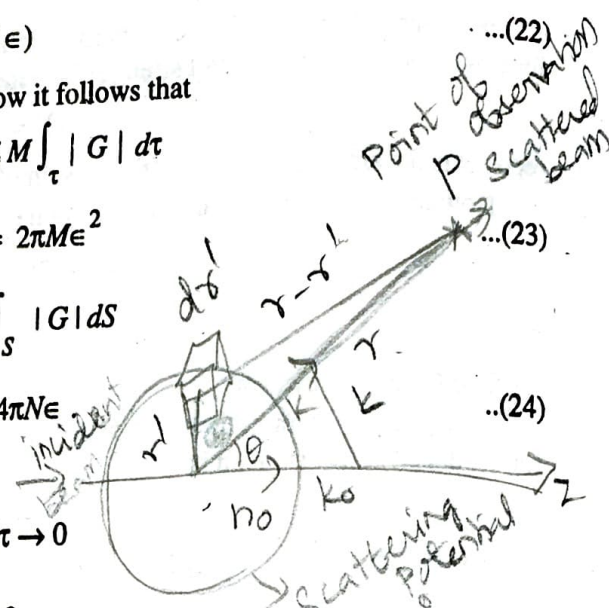 ∈)
...(22)
ow it follows that
M∫τ | G | dτ
= 2πM∈²
...(23)
∫S |G|dS
4πN∈
..(24)
τ → 0
Point of
observation
P scattered
beam
dr'
r-r'
r
r'
K
k
θ
n₀
k₀
Z
incident
beam
Scattering
potential